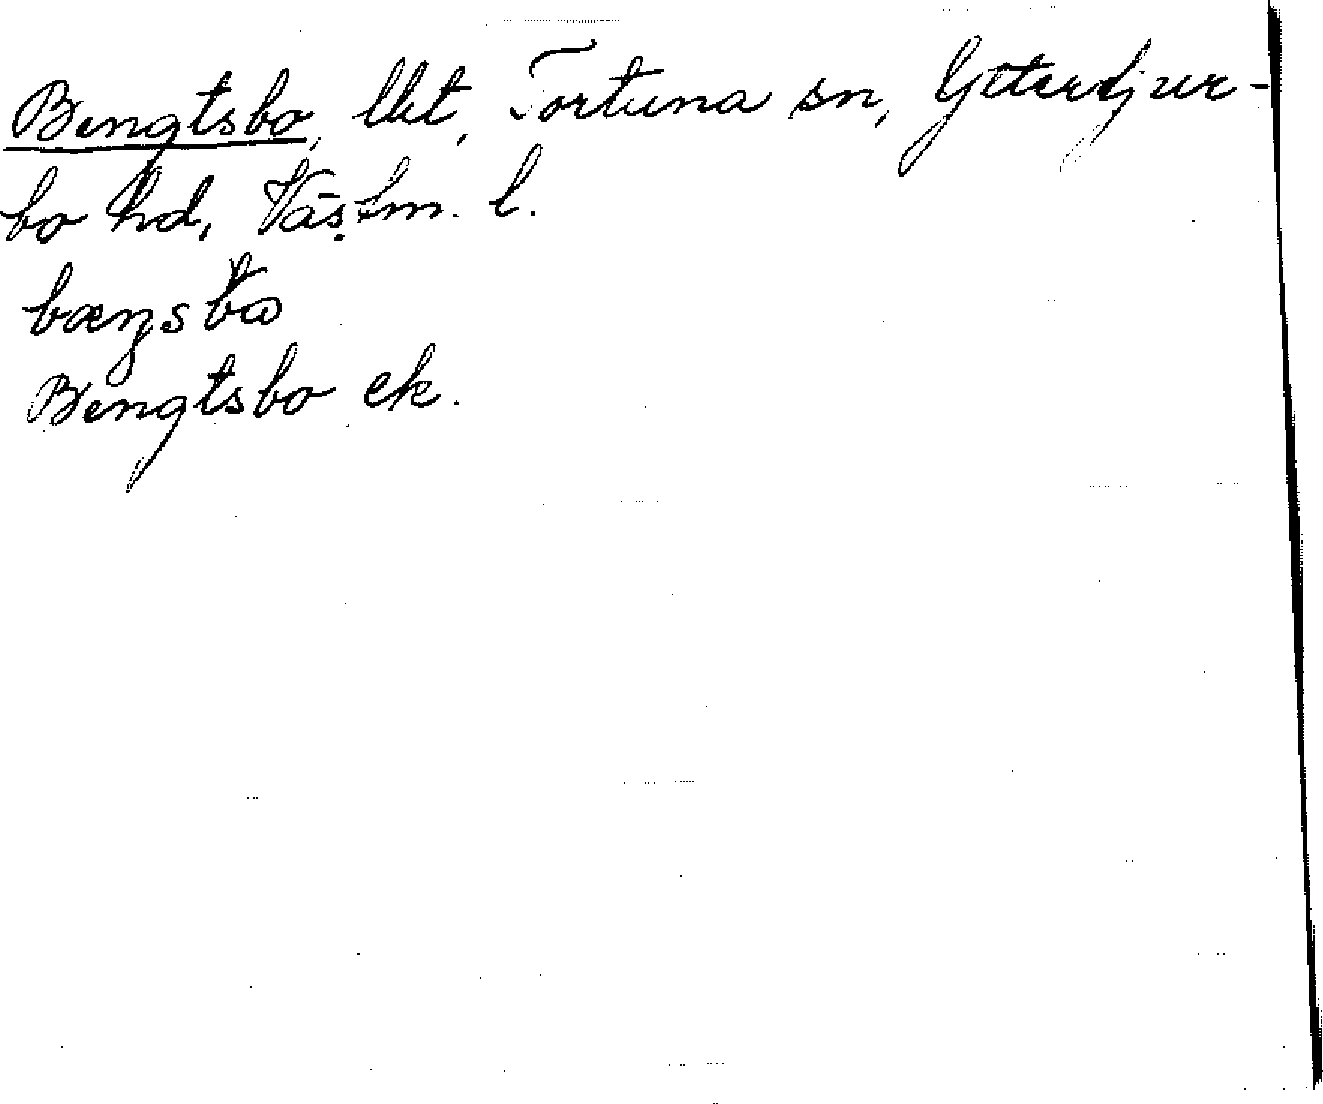 Bengtsbo, lht, Tortuna sn, Ytterstjur-
bo hd, Västm. l.
bæŋsbω
Bengtsbo ek.